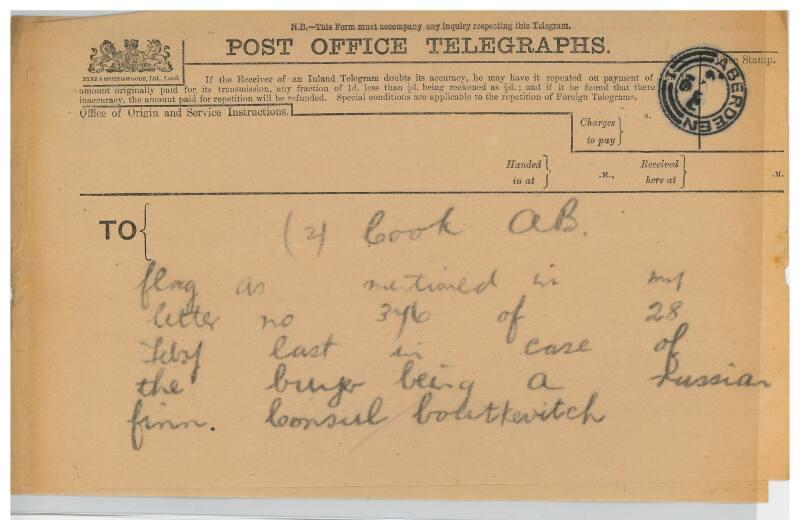 N.B.—This Form must accompany any inquiry respecting this Telegram.
POST OFFICE TELEGRAPHS.
EYRE & SPOTTISWOODE, Ltd., Lond.
If the Receiver of an Inland Telegram doubts its accuracy, he may have it repeated on payment of
amount originally paid for its transmission, any fraction of 1d. less than ½d. being reckoned as ½d.; and if it be found that there
inaccuracy, the amount paid for repetition will be refunded. Special conditions are applicable to the repetition of Foreign Telegrams.
Stamp.
ABERDEEN
Office of Origin and Service Instructions.
Charges
to pay
s.
Handed
in at
.M.,
Received
here at
.M.
TO
(2) Cook AB.
flag as mentioned in my
letter no 346 of 28
Feby last in case of
the buyer being a Russian
finn. Consul